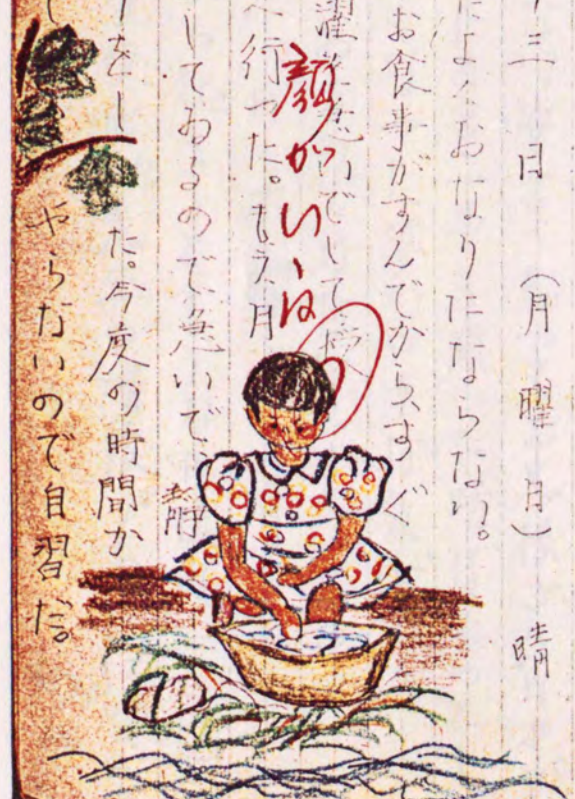 三日(月曜日) 晴
よくおなりにならない。
お食事がすんでから、すぐ
濯を急いでして
へ行った。もう、月
してゐるので、急いで、
をし た。今度の時間か
やらないので自習だ。
顔がいゝね